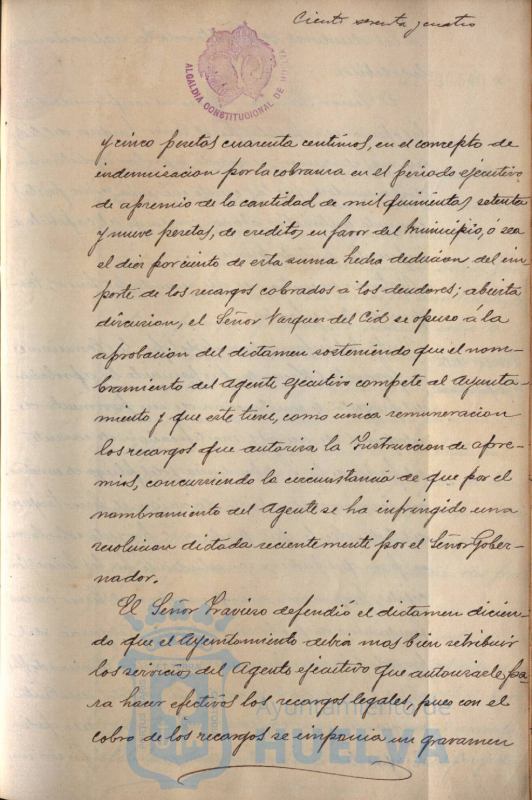 Ciento setenta y cuatro
ALCALDIA CONSTITUCIONAL DE HUELVA
y cinco pesetas cuarenta centimos, en el concepto de
indemnisacion por la cobranza en el periodo ejecutivo
de apremio de la cantidad de mil quinientas setenta
y nueve pesetas, de creditos en favor del Municipio, ó sea
el diez por ciento de esta suma hecha deduccion del im
porte de los recargos cobrados á los deudores; abierta
discusion, el Señor Vazquez del Cid se opuso á la
aprobacion del dictamen sosteniendo que el nom-
bramiento del Agente ejecutivo compete al Ayunta-
miento y que este tiene, como única remuneracion
los recargos que autoriza la Instruccion de apre-
mios, concurriendo la circunstancia de que por el
nombramiento del Agente se ha infringido una
resolucion dictada recientemente por el Señor Gober-
nador.
El Señor Travieso defendió el dictamen dicien-
do que el Ayuntamiento debia mas bien retribuir
los servicios del Agente ejecutivo que autorizarle pa-
ra hacer efectivos los recargos legales, pues con el
cobro de los recargos se imponia un gravamen
Ayuntamiento de
HUELVA